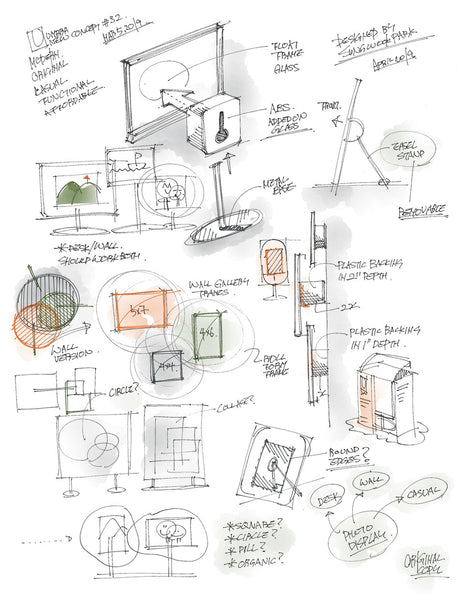 UMBRA NEW CONCEPT #32.
MAR 5. 2019.
MODERN.
ORIGINAL
CASUAL.
FUNCTIONAL.
AFFORDABLE.
DESIGNED BY
SUNGWOOK PARK
APRIL 2019.
FLOAT
FRAME
GLASS
ABS.
ADDED ON
GLASS
FRONT.
EASEL
STAND
REMOVABLE
METAL
BASE
* DESK/WALL.
SHOULD WORK BOTH.
WALL GALLERY
FRAMES.
5x7.
4x6.
4x4.
WALL
VERSION.
PILL
FORM
FRAME
PLASTIC BACKING
IN 2" DEPTH.
PLASTIC BACKING
IN 1" DEPTH.
CIRCLE?
COLLAGE?
ROUND
EDGES?
*SQUARE?
*CIRCLE?
*PILL?
*ORGANIC?
DESK
WALL
CASUAL
PHOTO
DISPLAY.
ORIGINAL